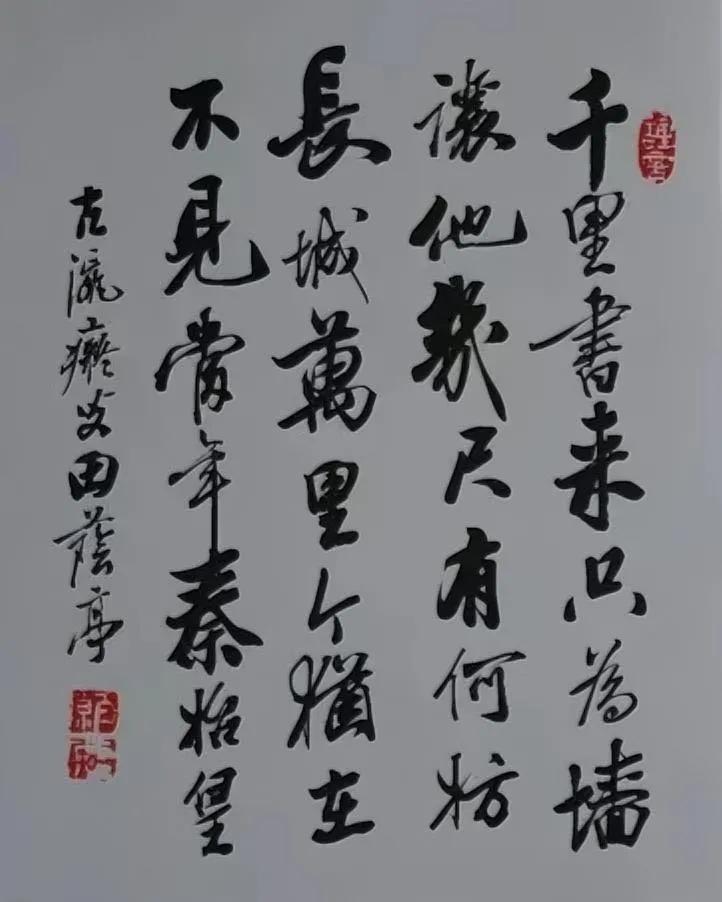 千里書来只為墙
讓他幾尺有何妨
長城萬里今猶在
不見當年秦始皇
古瀛癡田蔭亭